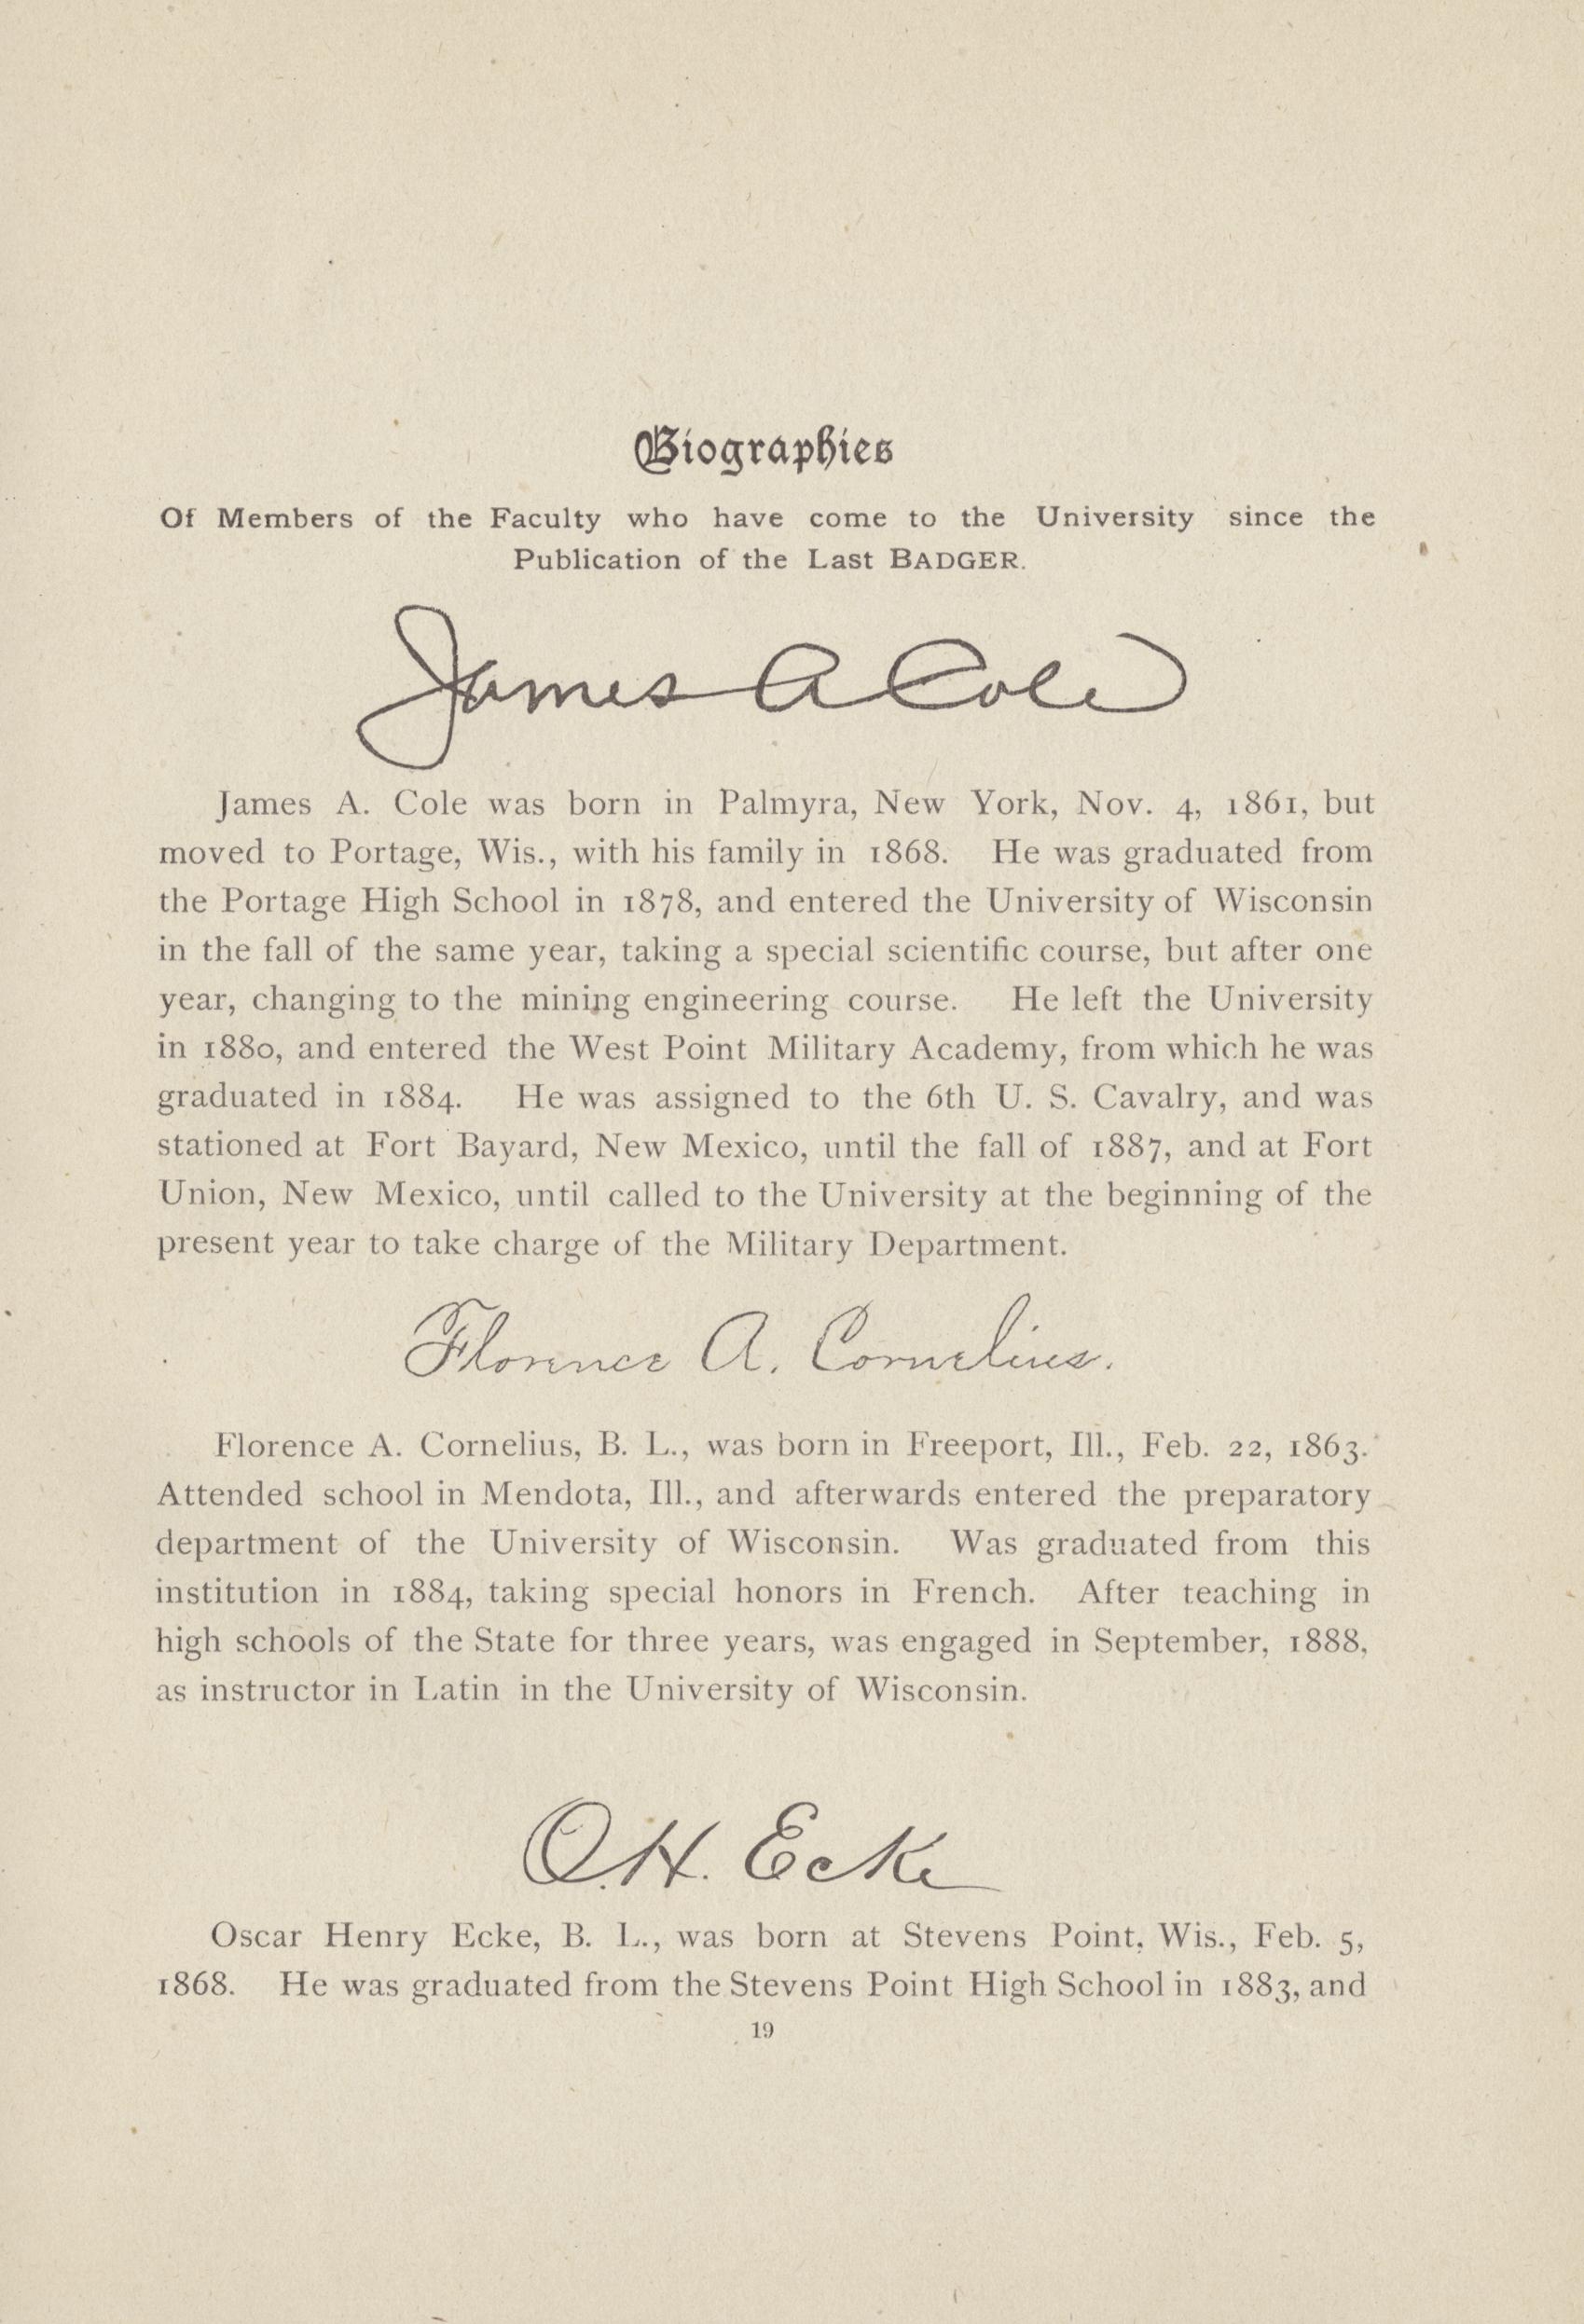 Biographies
Of Members of the Faculty who have come to the University since the
Publication of the Last BADGER.
James A Cole
James A. Cole was born in Palmyra, New York, Nov. 4, 1861, but
moved to Portage, Wis., with his family in 1868. He was graduated from
the Portage High School in 1878, and entered the University of Wisconsin
in the fall of the same year, taking a special scientific course, but after one
year, changing to the mining engineering course. He left the University
in 1880, and entered the West Point Military Academy, from which he was
graduated in 1884. He was assigned to the 6th U. S. Cavalry, and was
stationed at Fort Bayard, New Mexico, until the fall of 1887, and at Fort
Union, New Mexico, until called to the University at the beginning of the
present year to take charge of the Military Department.
Florence A. Cornelius.
Florence A. Cornelius, B. L., was born in Freeport, Ill., Feb. 22, 1863.
Attended school in Mendota, Ill., and afterwards entered the preparatory
department of the University of Wisconsin. Was graduated from this
institution in 1884, taking special honors in French. After teaching in
high schools of the State for three years, was engaged in September, 1888,
as instructor in Latin in the University of Wisconsin.
O.H. Ecke
Oscar Henry Ecke, B. L., was born at Stevens Point, Wis., Feb. 5,
1868. He was graduated from the Stevens Point High School in 1883, and
19